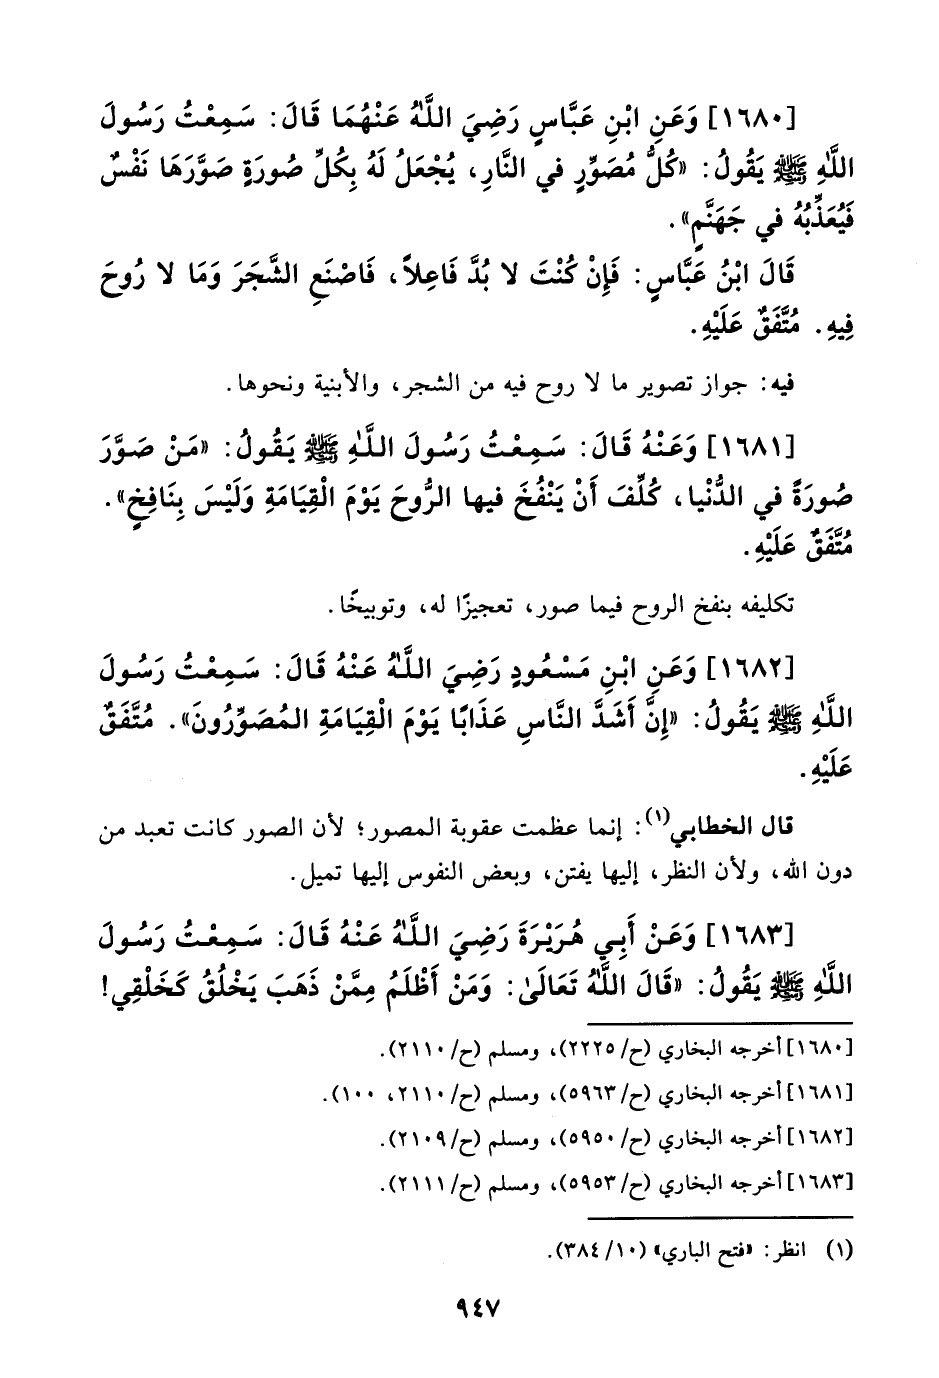 [١٦٨٠] وَعَنِ ابْنِ عَبَّاسٍ رَضِيَ اللَّهُ عَنْهُمَا قَالَ: سَمِعْتُ رَسُولَ
اللَّهِ ﷺ يَقُولُ: «كُلُّ مُصَوِّرٍ في النَّارِ، يُجْعَلُ لَهُ بِكُلِّ صُورَةٍ صَوَّرَهَا نَفْسٌ
فَيُعَذِّبُهُ في جَهَنَّمٍ».
قَالَ ابْنُ عَبَّاسٍ: فَإِنْ كُنْتَ لا بُدَّ فَاعِلاً، فَاصْنَعِ الشَّجَرَ وَمَا لا رُوحَ
فِيهِ. مُتَّفَقٌ عَلَيْهِ.
فيه: جواز تصوير ما لا روح فيه من الشجر، والأبنية ونحوها.
[١٦٨١] وَعَنْهُ قَالَ: سَمِعْتُ رَسُولَ اللَّهِ ﷺ يَقُولُ: «مَنْ صَوَّرَ
صُورَةً في الدُّنْيا، كُلِّفَ أَنْ يَنْفُخَ فيها الرُّوحَ يَوْمَ الْقِيَامَةِ وَلَيْسَ بِنَافِخٍ».
مُتَّفَقٌ عَلَيْهِ.
تكليفه بنفخ الروح فيما صور، تعجيزًا له، وتوبيخًا.
[١٦٨٢] وَعَنِ ابْنِ مَسْعُودٍ رَضِيَ اللَّهُ عَنْهُ قَالَ: سَمِعْتُ رَسُولَ
اللَّهِ ﷺ يَقُولُ: «إِنَّ أَشَدَّ النَّاسِ عَذَابًا يَوْمَ الْقِيَامَةِ المُصَوِّرُونَ». مُتَّفَقٌ
عَلَيْهِ.
قال الخطابي(١): إنما عظمت عقوبة المصور؛ لأن الصور كانت تعبد من
دون الله، ولأن النظر، إليها يفتن، وبعض النفوس إليها تميل.
[١٦٨٣] وَعَنْ أَبِي هُرَيْرَةَ رَضِيَ اللَّهُ عَنْهُ قَالَ: سَمِعْتُ رَسُولَ
اللَّهِ ﷺ يَقُولُ: «قَالَ اللَّهُ تَعَالَىٰ: وَمَنْ أَظْلَمُ مِمَّنْ ذَهَبَ يَخْلُقُ كَخَلْقِي!
[١٦٨٠] أخرجه البخاري (ح/٢٢٢٥)، ومسلم (ح/٢١١٠).
[١٦٨١] أخرجه البخاري (ح/٥٩٦٣)، ومسلم (ح/٢١١٠، ١٠٠).
[١٦٨٢] أخرجه البخاري (ح/٥٩٥٠)، ومسلم (ح/٢١٠٩).
[١٦٨٣] أخرجه البخاري (ح/٥٩٥٣)، ومسلم (ح/٢١١١).
(١) انظر: «فتح الباري» (١٠/٣٨٤).
٩٤٧